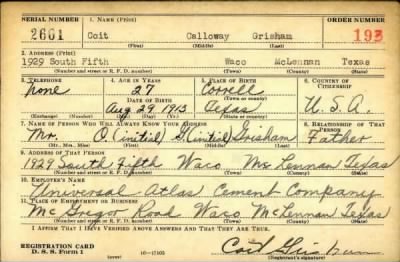 SERIAL NUMBER 1. NAME (Print) ORDER NUMBER
2601 Coit Calloway Grisham 193
(First) (Middle) (Last)
2. ADDRESS (Print)
1929 South Fifth Waco McLennan Texas
(Number and street or R. F. D. number) (Town) (County) (State)
3. TELEPHONE 4. AGE IN YEARS 5. PLACE OF BIRTH 6. COUNTRY OF CITIZENSHIP
none 27 Correll
DATE OF BIRTH (Town or county)
Aug. 29, 1913 Texas U.S.A.
(Exchange) (Number) (Mo.) (Day) (Yr.) (State or country)
7. NAME OF PERSON WHO WILL ALWAYS KNOW YOUR ADDRESS 8. RELATIONSHIP OF THAT PERSON
Mr. O (initial) G (initial) Grisham Father
(Mr., Mrs., Miss) (First) (Middle) (Last)
9. ADDRESS OF THAT PERSON
1929 South Fifth Waco McLennan Texas
(Number and street or R. F. D. number) (Town) (County) (State)
10. EMPLOYER'S NAME
Universal-Atlas Cement Company
11. PLACE OF EMPLOYMENT OR BUSINESS
McGregor Road Waco McLennan Texas
(Number and street or R. F. D. number) (Town) (County) (State)
I AFFIRM THAT I HAVE VERIFIED ABOVE ANSWERS AND THAT THEY ARE TRUE.
REGISTRATION CARD
D. S. S. FORM 1 16—17105 Coit Grisham
(over) (Registrant's signature)